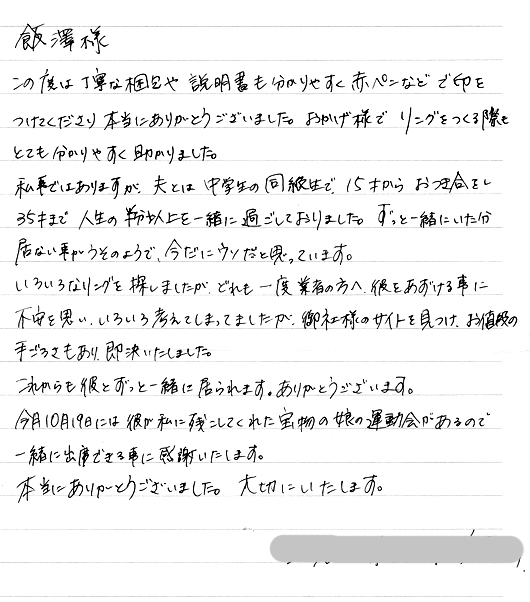 飯澤様
この度は丁寧な梱包や説明書も分かりやすく赤ペンなどで印を
つけてくださり本当にありがとうございました。おかげ様でリングをつくる際も
とても分かりやすく助かりました。
私事ではありますが、夫とは中学生の同級生で、15才からおつき合をし
35才まで人生の半分以上を一緒に過ごしておりました。ずっと一緒にいた分
居ない事がうそのようで、今だにウソだと思っています。
いろいろなリングを探しましたが、どれも一度業者の方へ、彼をあずける事に
不安を思い、いろいろ考えてしまってましたが、御社様のサイトを見つけ、お値段の
手ごろさもあり、即決いたしました。
これからも彼とずっと一緒に居られます。ありがとうございます。
今月10月19日には彼が私に残こしてくれた宝物の娘の運動会があるので
一緒に出席できる事に感謝いたします。
本当にありがとうございました。大切にいたします。